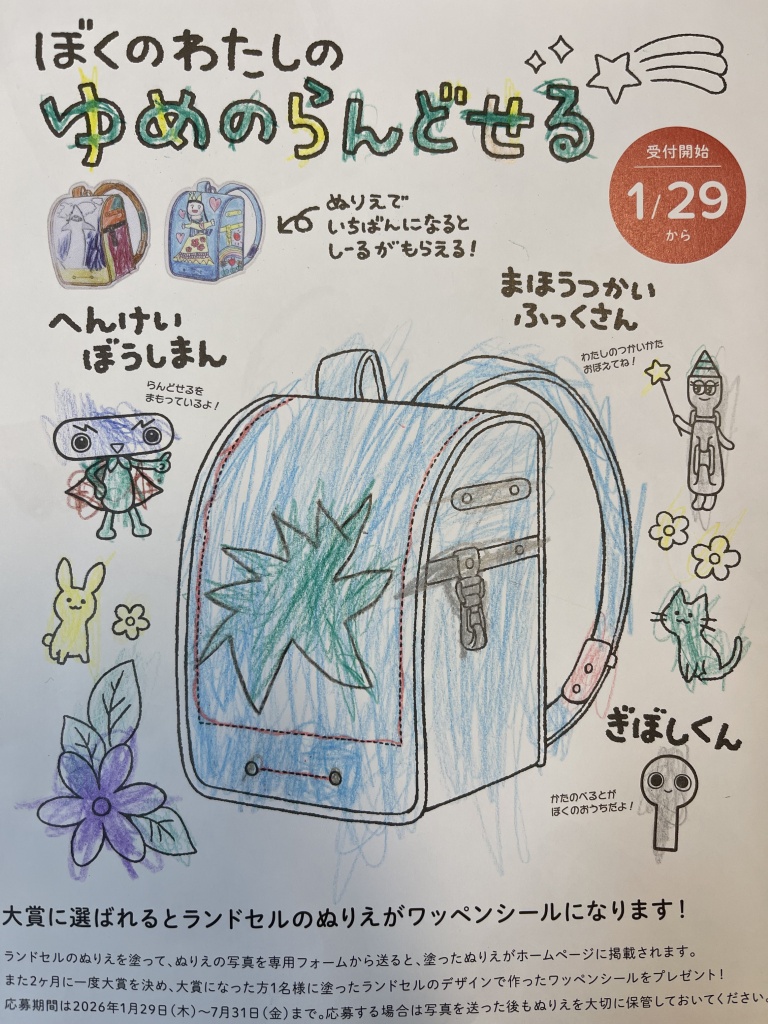 ぼくのわたしの
ゆめのらんどせる
受付開始
1/29
から
ぬりえで
いちばんになると
しーるがもらえる！
まほうつかい
ふっくさん
わたしのつかいかた
おぼえてね！
へんけい
ぼうしまん
らんどせるを
まもっているよ！
ぎぼしくん
かたのべるとが
ぼくのおうちだよ！
大賞に選ばれるとランドセルのぬりえがワッペンシールになります！
ランドセルのぬりえを塗って、ぬりえの写真を専用フォームから送ると、塗ったぬりえがホームページに掲載されます。
また2ヶ月に一度大賞を決め、大賞になった方1名様に塗ったランドセルのデザインで作ったワッペンシールをプレゼント！
応募期間は2026年1月29日(木)～7月31日(金)まで。応募する場合は写真を送った後もぬりえを大切に保管しておいてください。